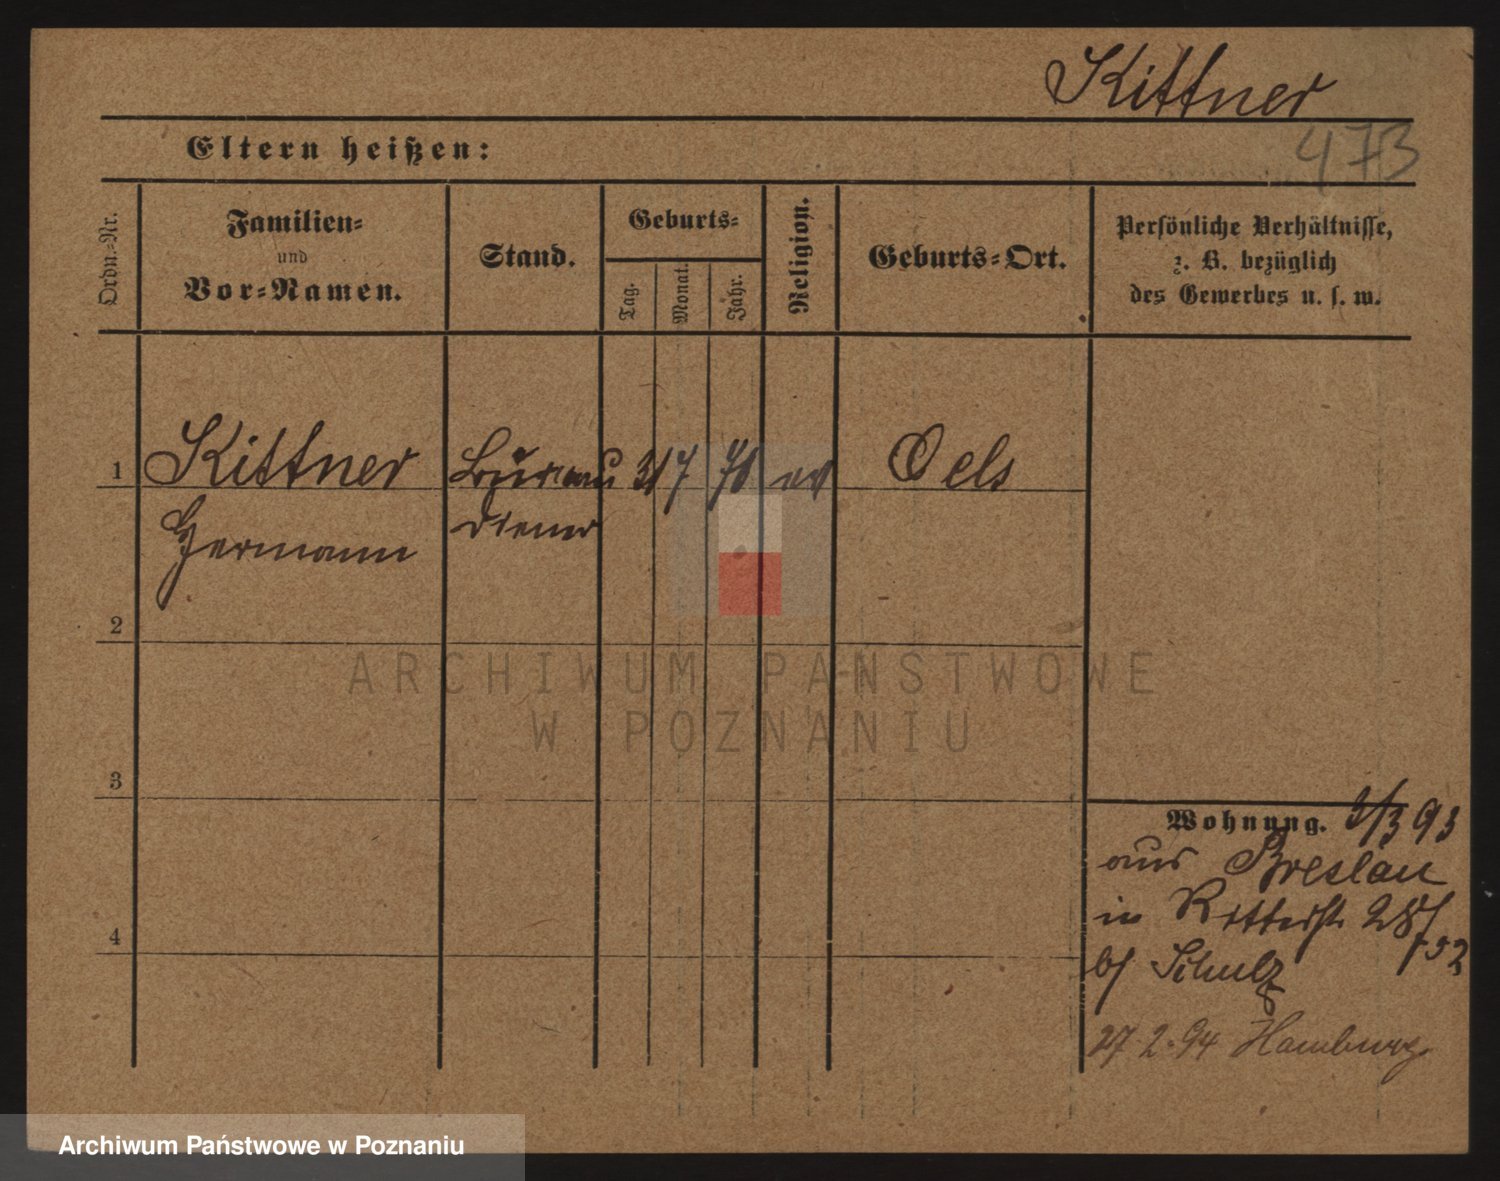 Kittner
473
Eltern heißen:
Ordn.-Nr.
Familien-
und
Vor-Namen.
Stand.
Geburts-
Tag.
Monat.
Jahr.
Religion.
Geburts-Ort.
Persönliche Verhältnisse,
z. B. bezüglich
des Gewerbes u. s. w.
1
Kittner
Hermann
Bureau
diener
31
7
71
ev
Oels
2
3
4
Wohnung. 3/3 93
aus Breslau
in Ritterstr. 28/
b/ Schulz
27 2.94 Hamburg.
ARCHIWUM PAŃSTWOWE
W POZNANIU
Archiwum Państwowe w Poznaniu